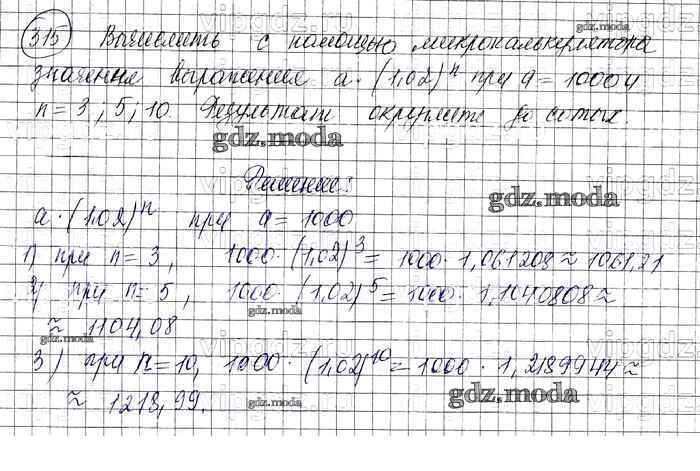 315 Вычислить с помощью микрокалькулятора
значения выражения a · (1,02)ⁿ при a = 1000 и
n = 3; 5; 10. Результат округлить до сотых.
Решение:
a · (1,02)ⁿ при a = 1000
1) при n = 3, 1000 · (1,02)³ = 1000 · 1,061208 ≈ 1061,21
2) при n = 5, 1000 · (1,02)⁵ = 1000 · 1,1040808 ≈
≈ 1104,08
3) при n = 10, 1000 · (1,02)¹⁰ = 1000 · 1,2189944 ≈
≈ 1218,99.
gdz.moda
gdz.moda
gdz.moda
gdz.moda
gdz.moda
gdz.moda
gdz.moda